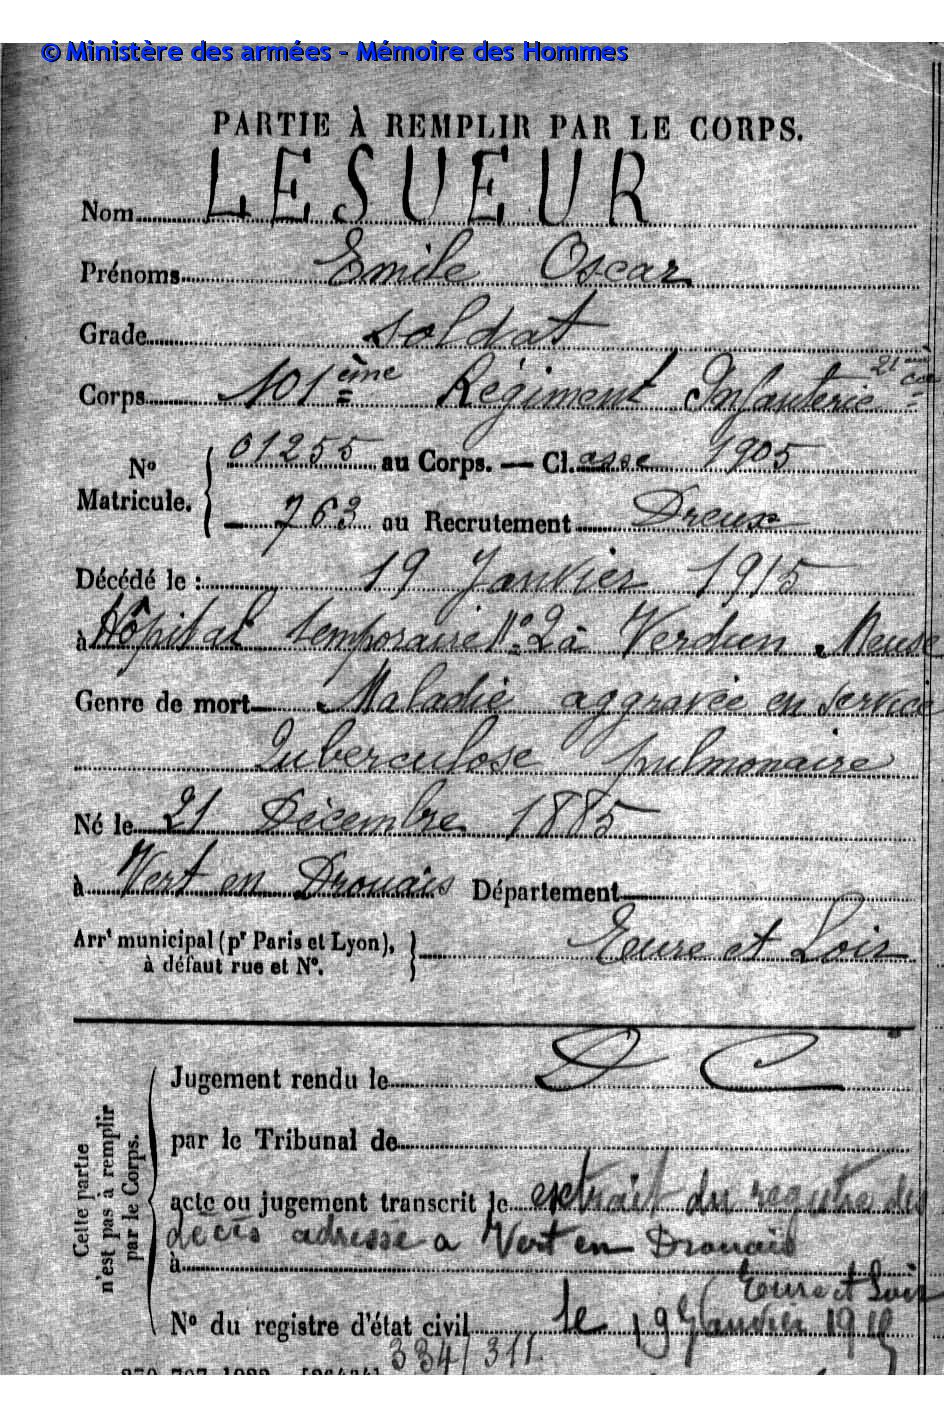 © Ministère des armées - Mémoire des Hommes
PARTIE À REMPLIR PAR LE CORPS.
Nom LESUEUR
Prénoms Emile Oscar
Grade soldat
Corps 101ème Régiment Infanterie 21ème Cie
Nº Matricule. 01255 au Corps. — Cl.asse 1905
763 au Recrutement Dreux
Décédé le : 19 Janvier 1915
à Hôpital temporaire Nº 2 à Verdun. Meuse
Genre de mort Maladie aggravée en service
Tuberculose pulmonaire
Né le 21 Décembre 1885
à Vert en Drouais Département
Arrt municipal (pr Paris et Lyon), à défaut rue et Nº. Eure et Loir
D C
Cette partie n'est pas à remplir par le Corps.
Jugement rendu le
par le Tribunal de
acte ou jugement transcrit le extrait du registre des
décès adressé a Vert en Drouais
à
Eure et Loir
Nº du registre d'état civil le 19 Janvier 1915
334/311.